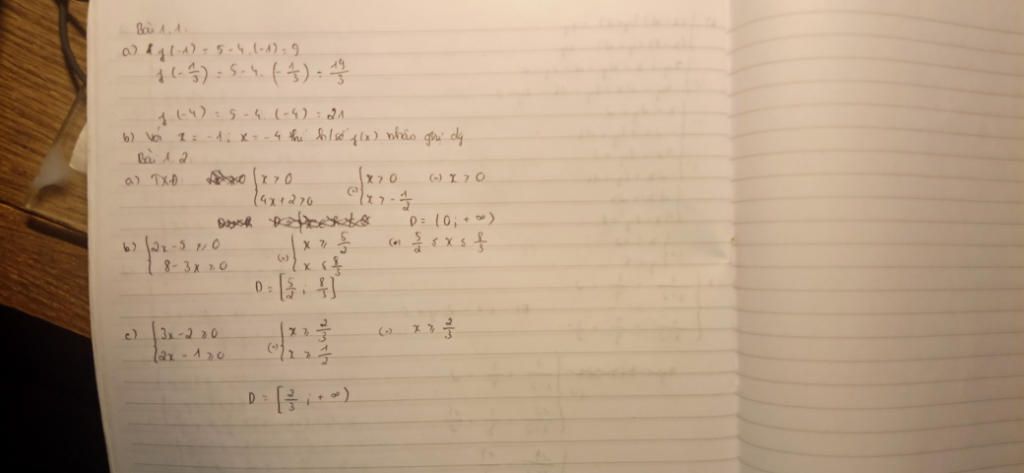 Bài 1.1.
a) f(-1) = 5 - 4.(-1) = 9
f(-1/3) = 5 - 4.(-1/3) = 19/3
f(-4) = 5 - 4.(-4) = 21
b) Với x = -1; x = -4 thì h/số f(x) nhận giá
Bài 1.2.
a) TXĐ { x > 0 ; 4x + 2 > 0 (=) { x > 0 ; x > -1/2 (=) x > 0
D = (0; +∞)
b) { 2x - 5 ≥ 0 ; 8 - 3x ≥ 0 (=) { x ≥ 5/2 ; x ≤ 8/3 (=) 5/2 ≤ x ≤ 8/3
D = [5/2; 8/3]
c) { 3x - 2 ≥ 0 ; 2x - 1 ≥ 0 (=) { x ≥ 2/3 ; x ≥ 1/2 (=) x ≥ 2/3
D = [2/3; +∞)